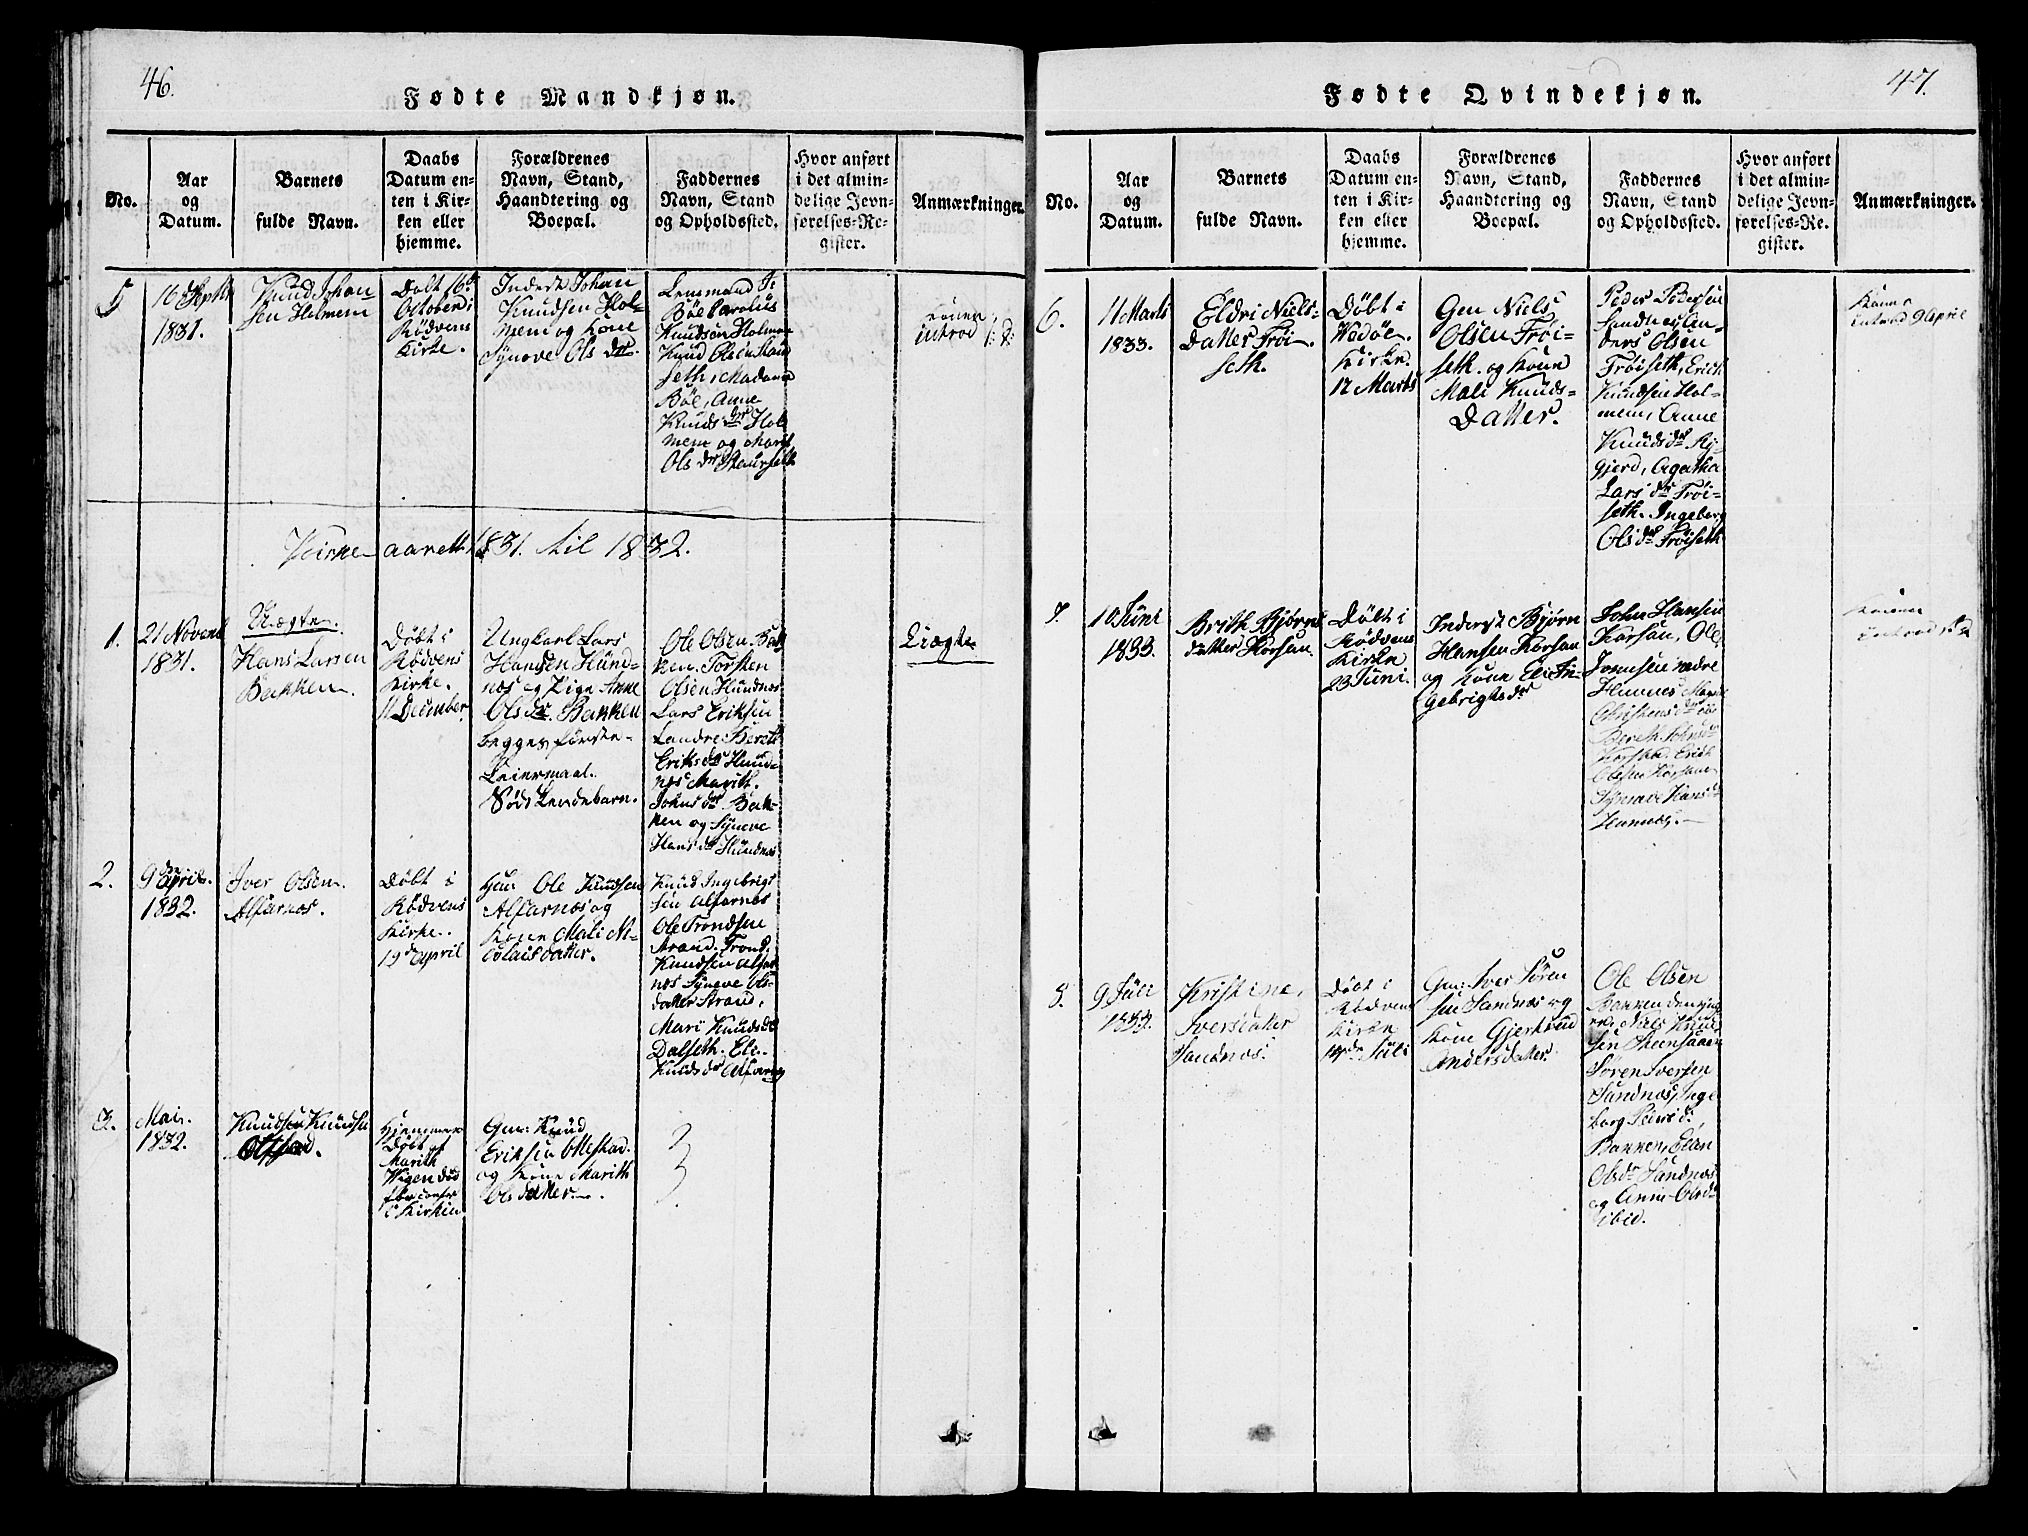 46.
Fødte Mandkjøn.
No.
Aar
og
Datum.
Barnets
fulde Navn.
Daabs
Datum en-
ten i Kir-
ken eller
hjemme.
Forældrenes
Navn, Stand,
Haandtering og
Boepæl.
Faddernes
Navn, Stand
og Opholdssted.
Hvor anført
i det almin-
delige Jevn-
førelses-Re-
gister.
Anmærkninger.
5
16 Septbr
1831.
Knud Johan-
sen Holmem
Døbt 16de
October i
Rødvens
Kirke.
Inderst Johan
Knudsen Hol-
mem og Kone
Synove Ols dtr.
Lensmand
Böe Carolus
Knudsen Holmem
Knud Olsen
seth, Madame
Böe, Anne
Knuds dr Hol
mem og Marit
Ols dr
Konen
introd
Kirke-aaret 1831. til 1832.
1.
21 Novenb
1831.
Uægte.
Hans Larsen
Bakken.
Døbt i
Rødvens
Kirke.
11 December
Ungkarl Lars
Hansen Hund-
næs og Pige Anne
Olsdr. Bakken
begges første
Leiermaal.
Ole Olsen Bak
ken. Torsten
Olsen Hundnæs
Lars Eriksen
Landre. Bereth
Eriksdr Hund-
næs Marith.
Johnsdr Bak-
ken og Syneve
Hans dr Hundnæs
Uægte
2.
9de April.
1832.
Iver Olsen.
Alfarnæs.
Døbt i
Rødvens
Kirke.
19de April
Gm: Ole Knudsen
Alfarnæs og
Kone Mali Ni-
colaisdatter.
Knud Ingebrigt
sen Alfarnæs
Ole Trondsen
Strand. Trond.
Knudsen Alfar
næs Syneve Ols-
datter Strand,
Mari Knudsdr
Dalseth. Eli-
Knudsdr Alfarnæs
3.
Mai.
1832.
Knudsen Knudsen
Hjemme
Døbt af
Marith
Wigen død
før confir
i Kirken
Gm: Knud
Eriksen Ottestad.
og Kone Marith
Olsdatter.
47.
Fødte Qvindekjøn.
No.
Aar
og
Datum.
Barnets
fulde Navn.
Daabs
Datum en-
ten i Kir-
ken eller
hjemme.
Forældrenes
Navn, Stand,
Haandtering og
Boepæl.
Faddernes
Navn, Stand
og Opholdssted.
Hvor anført
i det almin-
delige Jevn-
førelses-Re-
gister.
Anmærkninger.
6.
11 Marts
1833.
Eldri Niels-
Datter Frøi-
seth.
Døbt i
Wedøe.
Kirke
17 Marts
Gm Niels
Olsen Frøi-
seth. og Kone
Mali Knuds-
Datter.
Peder Pedersen
Sandnes An-
ders Olsen
Frøiseth, Erich
Knudsen Hol-
mem, Anne
Knudsdr
gjerd, Agatha
Lars dr Frøi-
seth. Ingeberg
Olsdr Frøiseth
Konen
introd 9 April
7.
10 Juni
1833.
Brith Bjørns
datter Horsan.
Døbt i
Rødvens
Kirke
23 Juni.
Inderst Bjørn
Hansen Horsan
og Kone Eli In-
gebrigtsdr
John Hansen
Horsan, Ole
Jonnsen nedre
Hannes
Christensdr
Bereth Johnsdr
Horsan. Erich
Olsen Horsan
Synneve Hansdr
Hannes.
Konen
introd
8.
9 Juli
1833.
Kristine,
Iversdatter
Sandnæs.
Døbt i
Rødvens
Kirke
14de Juli
Gm: Iver Søren
sen Sandnæs og
Kone Gjertrud
Andersdatter.
Ole Olsen
Bakken den yng
re, Niels Knud
sen
Søren Iversen
Sandnæs, Inge
borg Peders d.
Bakken, Elen
Olsdr Sandnæs
og Anne Olsdr
ibid.